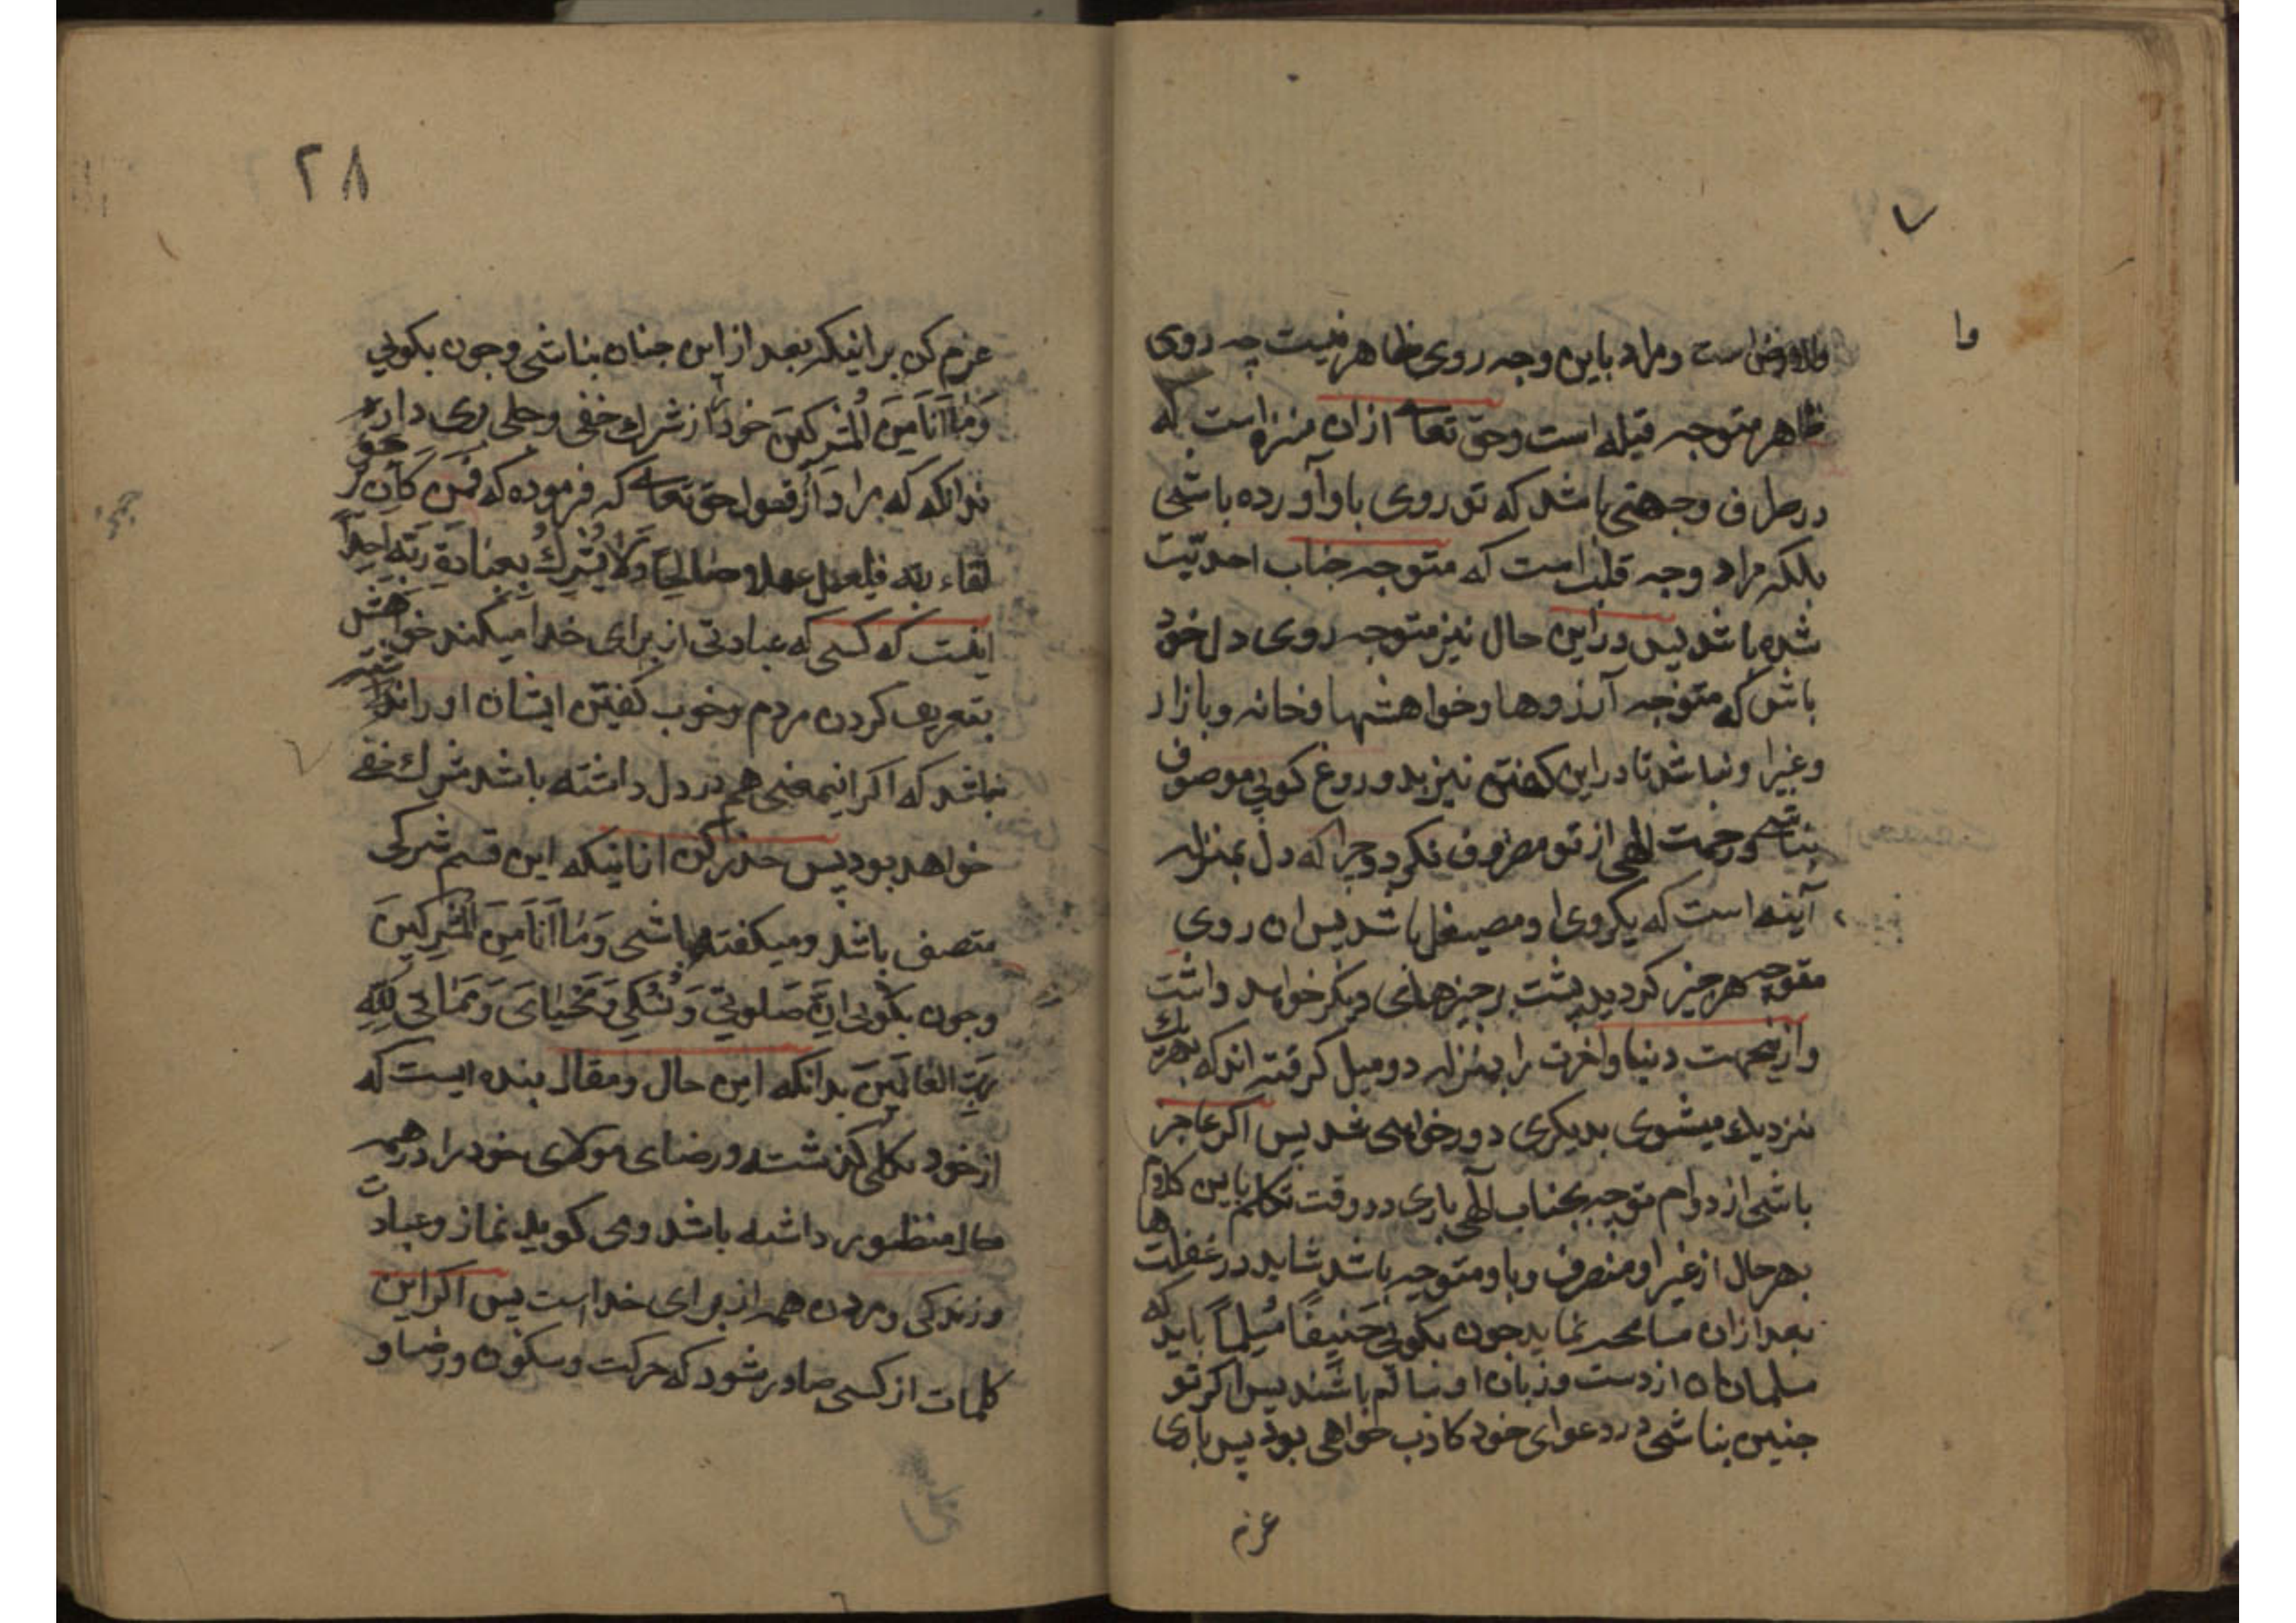 والارض است و مراد باین وجه روی ظاهر نیست چه روی
ظاهر متوجه قبله است و حق تعا از ان منزه است که
در طرف و جهتی باشد که تو روی باو آورده باشی
بلکه مراد وجه قلب است که متوجه جناب احدیّت
شده باشد پس در این حال نیز متوجه روی دل خود
باش که متوجه آرزوها و خواهشها و خانه و بازار
و غیر او نباشد تا در این گفتن نیز بدروغ کویی موصوف
نباشی و رحمت الهی از تو مصروف نکردد چرا که دل بمنزله
آینه است که یکروی او مصیقل باشد پس ان روی
متوجه هر چیز کردید پشت بر چیزهای دیکر خواهد داشت
و ازینجهت دنیا و اخرت را بمنزله دو میل کرفته اند که بهر یک
نزدیک میشوی بدیکری دور خواهی شد پس اکر عاجز
باشی از دوام توجه بجناب الهی باری در وقت تکلم باین کلام
بهر حال از غیر او منصرف و باو متوجه باش شاید در غفلتها
بعد از ان مسامحه نماید چون بکویی حَنِیفًا مُسْلِمًا باید که
مسلمانان از دست و زبان او سالم باشند پس اکر تو
چنین نباشی در دعوای خود کاذب خواهی بود پس باری
عزم
وا
۷
۲۸
عزم کن بر اینکه بعد از این چنان نباشی و چون بکویی
وَمَا اَنَا مِنَ الْمُشْرِکِینَ خود را از شرک خفی و جلی بری دار
بدانکه که مراد از قول حق تعا که فرموده که فَمَن کَانَ یرجو
لقاء ربّه فلیعمل عملا صالحاً وَلَا یُشْرِكْ بِعِبَادَةِ رَبِّه اَحَداً
اینست که کسی که عبادتی از برای خدا میکند خواهش
بتعریف کردن مردم و خوب کفتن ایشان او را نداشته
نباشد که اکر اینمعنی هم در دل داشته باشد شرک خفی
خواهد بود پس حذر کن از اینکه این قسم شرکی
متصف باشد و میکفته باشی وَمَا اَنَا مِنَ الْمُشْرِکِینَ
و چون بکویی اِنَّ صَلوتِی وَنُسُکِی وَمَحْیَایَ وَمَمَاتِی لِلّهِ
رَبِّ الْعَالَمِینَ بدانکه این حال و مقال بنده ایست که
از خود بکلی کذشته و رضای مولای خود را در همه
حال منظور داشته باشد و می کوید نماز و عبادت
و زندکی و مردن همه از برای خداست پس اکر این
کلمات از کسی صادر شود که حرکت و سکون و رضا و